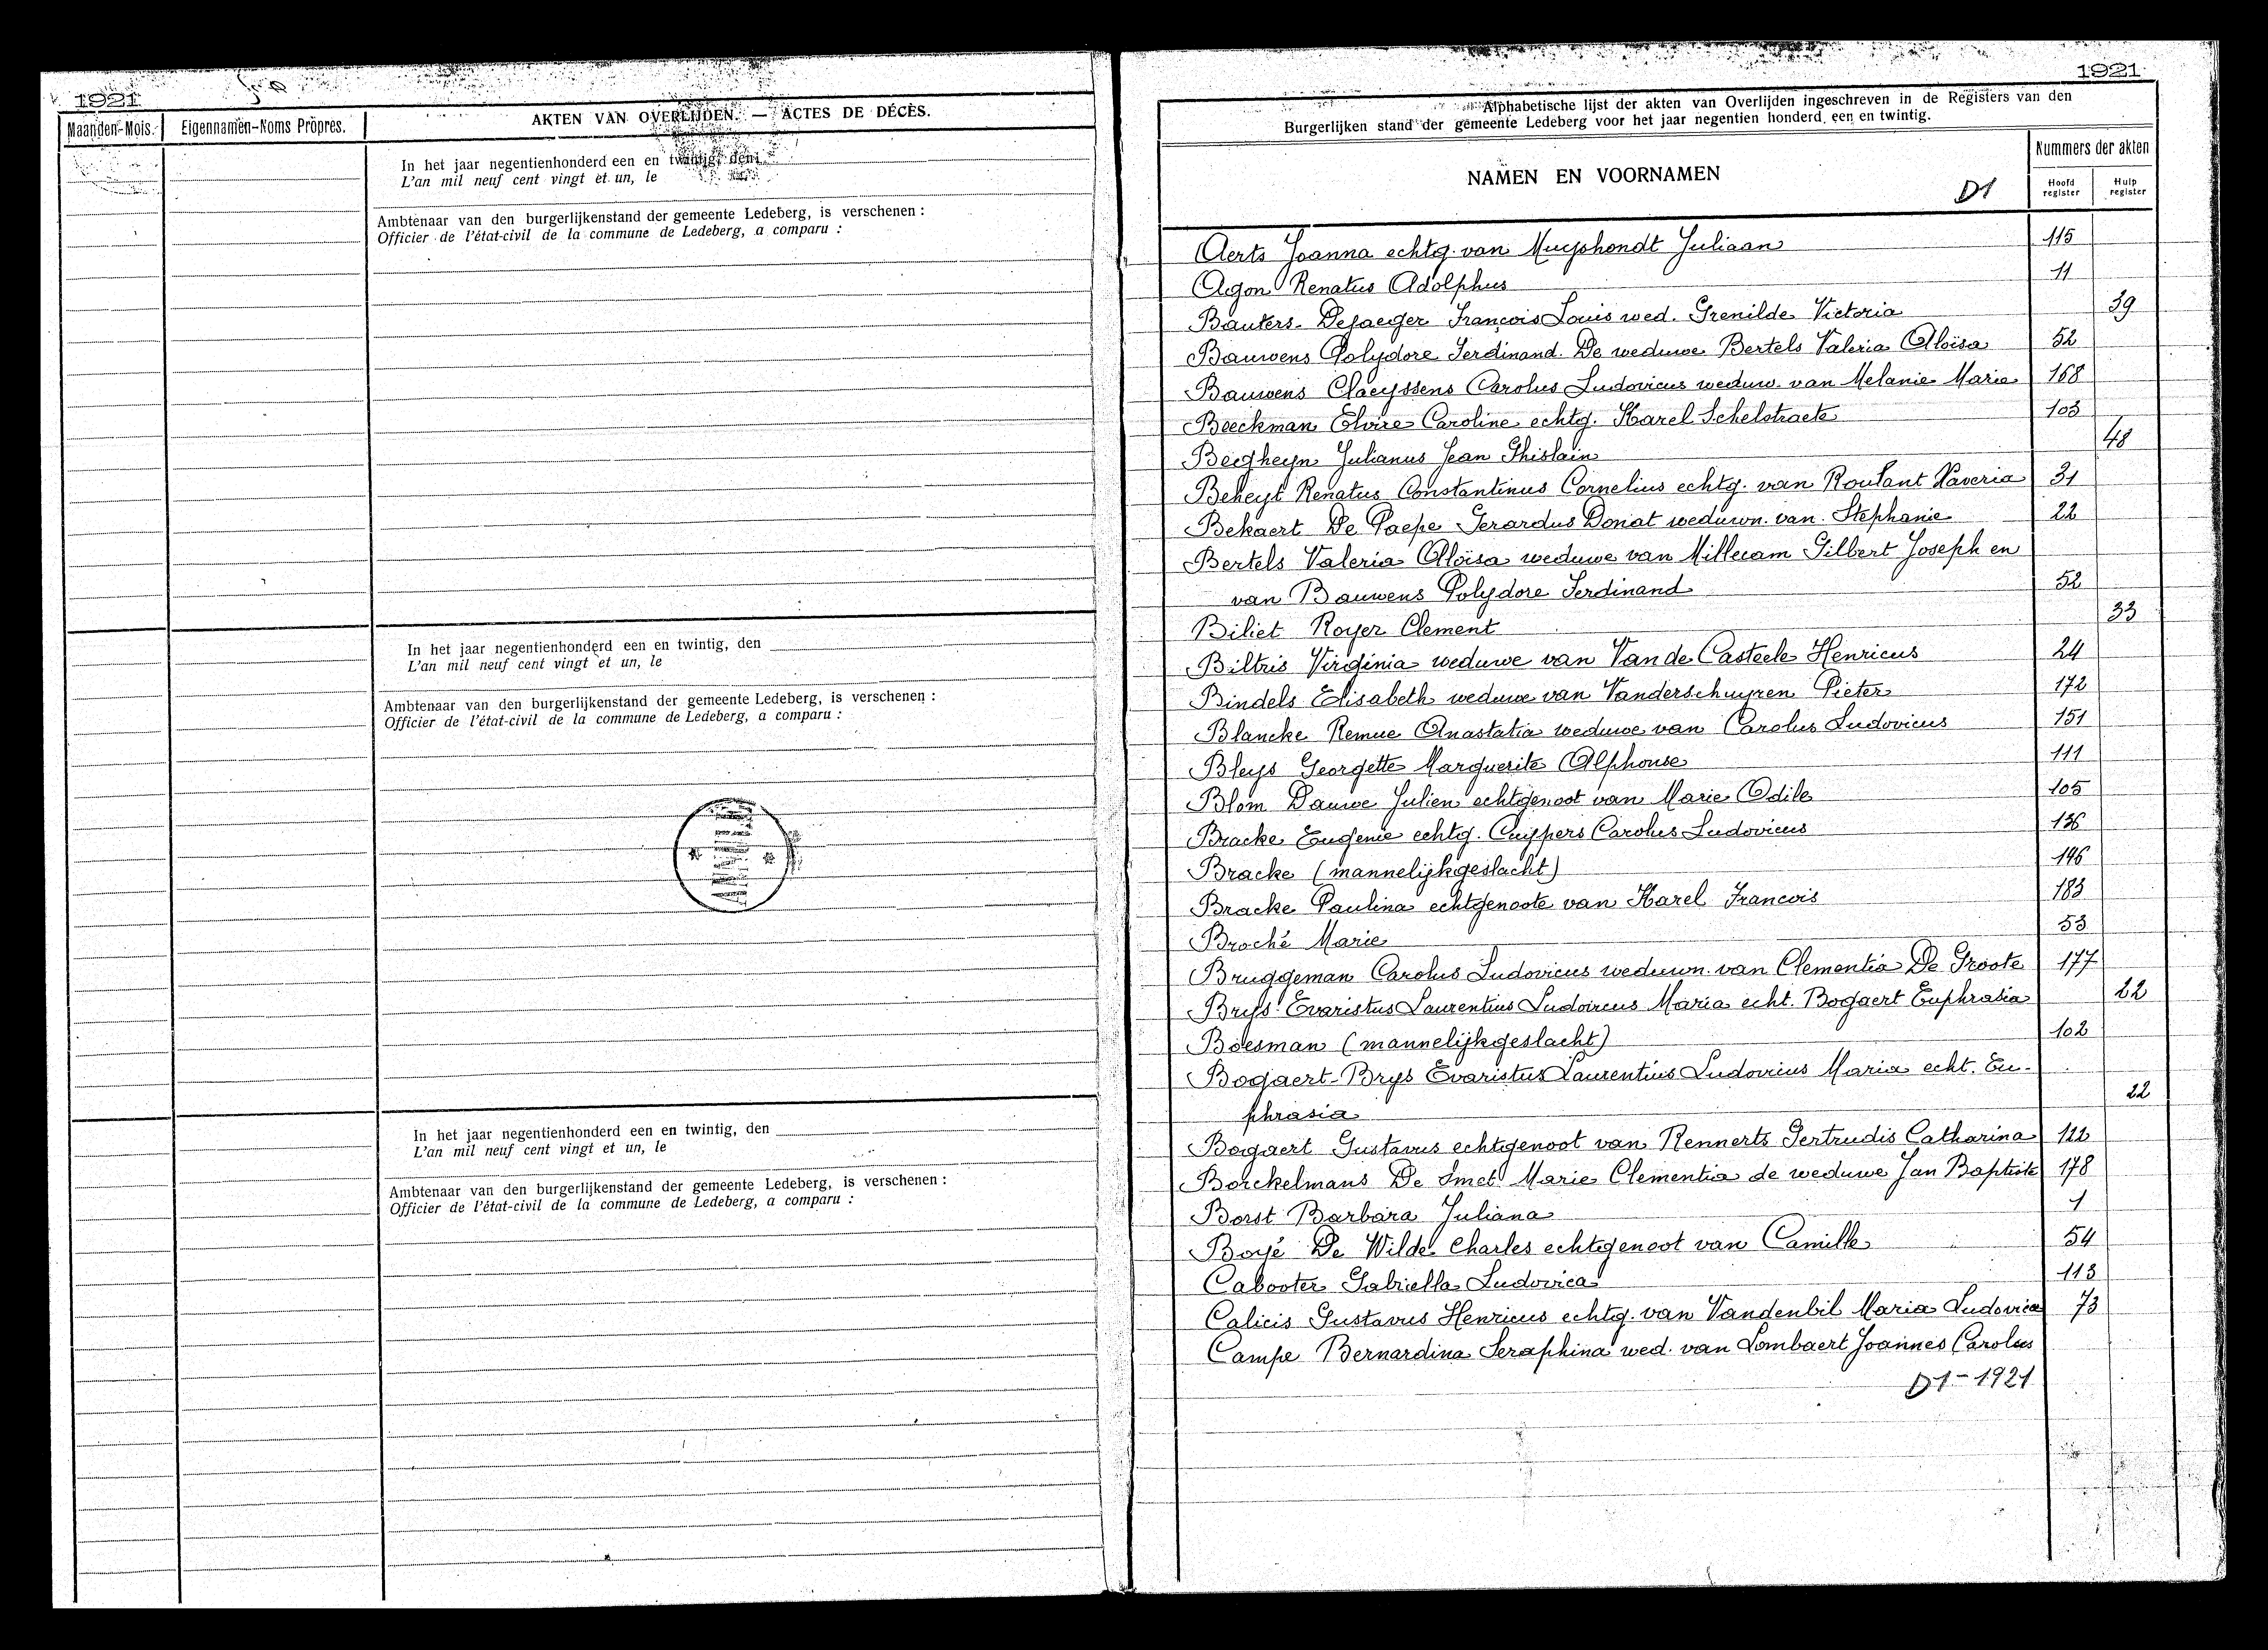 1921
Maanden-Mois.
Eigennamen-Noms Propres.
AKTEN VAN OVERLIJDEN. — ACTES DE DÉCÈS.
In het jaar negentienhonderd een en twintig, den
L'an mil neuf cent vingt et un, le
Ambtenaar van den burgerlijkenstand der gemeente Ledeberg, is verschenen :
Officier de l'état-civil de la commune de Ledeberg, a comparu :
In het jaar negentienhonderd een en twintig, den
L'an mil neuf cent vingt et un, le
Ambtenaar van den burgerlijkenstand der gemeente Ledeberg, is verschenen :
Officier de l'état-civil de la commune de Ledeberg, a comparu :
In het jaar negentienhonderd een en twintig, den
L'an mil neuf cent vingt et un, le
Ambtenaar van den burgerlijkenstand der gemeente Ledeberg, is verschenen :
Officier de l'état-civil de la commune de Ledeberg, a comparu :
1921
Alphabetische lijst der akten van Overlijden ingeschreven in de Registers van den
Burgerlijken stand der gemeente Ledeberg voor het jaar negentien honderd een en twintig.
NAMEN EN VOORNAMEN
D1
Nummers der akten
Hoofd register
Hulp register
Aerts Joanna echtg. van Muyshondt Juliaan 115
Agon Renatus Adolphus 11
Bauters-Dejaeger François Louis wed. Grenilde Victoria 39
Bauwens Polydore Ferdinand. De weduwe Bertels Valeria Aloïsa 52
Bauwens Claeyssens Carolus Ludovicus weduw. van Melanie Marie 168
Beeckman Elvire Caroline echtg. Karel Schelstraete 103
Beegheyn Julianus Jean Ghislain 48
Beheyt Renatus Constantinus Cornelius echtg. van Roulant Xaveria 31
Bekaert De Paepe Gerardus Donat weduwn. van Stephanie 22
Bertels Valeria Aloïsa weduwe van Millecam Gilbert Joseph en
van Bauwens Polydore Ferdinand 52
Biliet Royer Clement 33
Biltris Virginia weduwe van Van de Casteele Henricus 24
Bindels Elisabeth weduwe van Vanderschuyren Pieter 172
Blancke Remue Anastatia weduwe van Carolus Ludovicus 151
Bleys Georgette Marguerite Alphonse 111
Blom Dauwe Julien echtgenoot van Marie Odile 105
Bracke Eugenie echtg. Cuypers Carolus Ludovicus 136
Bracke (mannelijkgeslacht) 146
Bracke Paulina echtgenoote van Karel Francois 183
Broché Marie 53
Bruggeman Carolus Ludovicus weduwn. van Clementia De Groote 177
Brys Evaristus Laurentius Ludoircus Maria echt. Bogaert Euphrasia 22
Boesman (mannelijkgeslacht) 102
Bogaert-Brys Evaristus Laurentius Ludovicus Maria echt. Eu-
phrasia 22
Bogaert Gustavus echtgenoot van Rennerts Gertrudis Catharina 122
Borckelmans De Smet Marie Clementia de weduwe Jan Baptiste 178
Borst Barbara Juliana 1
Boyé De Wilde Charles echtgenoot van Camille 54
Cabooter Gabriella Ludovica 113
Calicis Gustavus Henricus echtg. van Vandenbil Maria Ludovica 73
Campe Bernardina Seraphina wed. van Lombaert Joannes Carolus
D1-1921